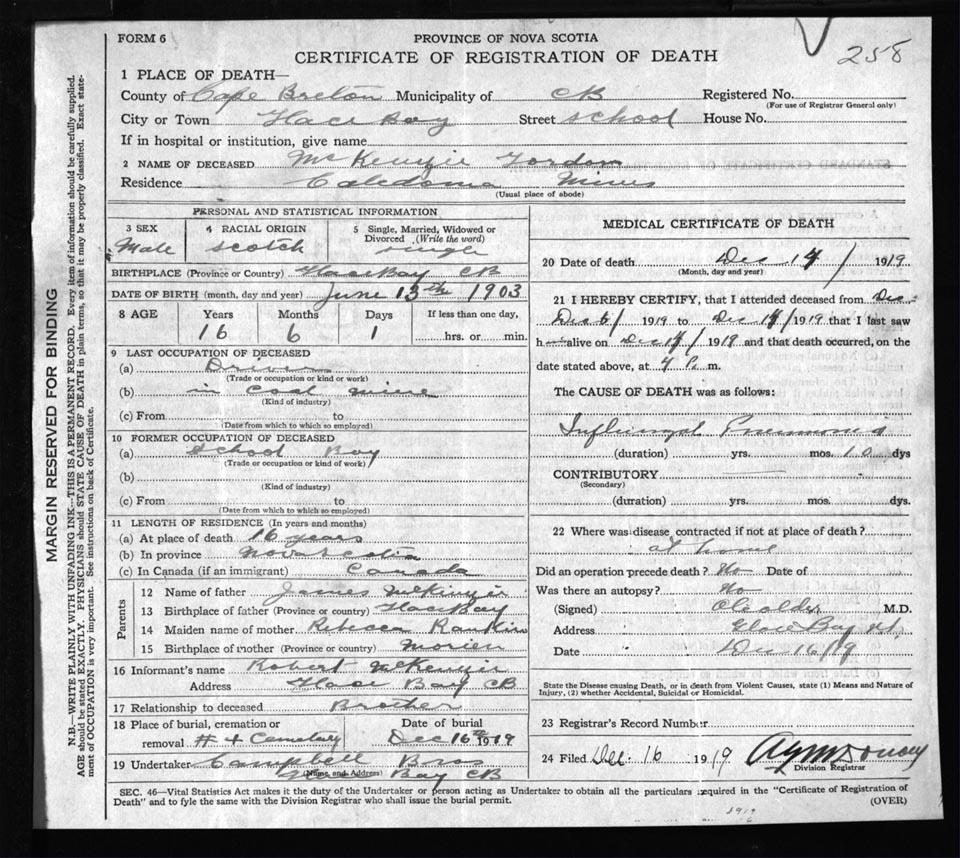 FORM 6
PROVINCE OF NOVA SCOTIA
258
CERTIFICATE OF REGISTRATION OF DEATH
1 PLACE OF DEATH—
County of Cape Breton Municipality of CB Registered No.
(For use of Registrar General only)
City or Town Glace Bay Street School House No.
If in hospital or institution, give name
2 NAME OF DECEASED McKenzie Gordon
Residence Caledonia Mines
(Usual place of abode)
PERSONAL AND STATISTICAL INFORMATION
3 SEX 4 RACIAL ORIGIN 5 Single, Married, Widowed or Divorced (Write the word)
Male Scotch single
BIRTHPLACE (Province or Country) Glace Bay CB
DATE OF BIRTH (month, day and year) June 13th 1903
8 AGE Years Months Days If less than one day,
16 6 1 hrs. or min.
9 LAST OCCUPATION OF DECEASED
(a) Driver
(Trade or occupation or kind or work)
(b) in coal mine
(Kind of industry)
(c) From to
(Date from which to which so employed)
10 FORMER OCCUPATION OF DECEASED
(a) School Boy
(Trade or occupation or kind of work)
(b)
(Kind of industry)
(c) From to
(Date from which to which so employed)
11 LENGTH OF RESIDENCE (In years and months)
(a) At place of death 16 years
(b) In province Nova Scotia
(c) In Canada (if an immigrant) Canada
Parents
12 Name of father James McKenzie
13 Birthplace of father (Province or country) Glace Bay
14 Maiden name of mother Rebecca Rankin
15 Birthplace of mother (Province or country) Morien
16 Informant's name Robert McKenzie
Address Glace Bay CB
17 Relationship to deceased Brother
18 Place of burial, cremation or Date of burial
removal # 4 Cemetary Dec 16th 1919
19 Undertaker Campbell Bros
(Name and Address) Glace Bay CB
MEDICAL CERTIFICATE OF DEATH
20 Date of death Dec 14/ 1919
(Month, day and year)
21 I HEREBY CERTIFY, that I attended deceased from Dec
Dec 6/ 1919 to Dec 14/ 1919 that I last saw
h alive on Dec 14/ 1918 and that death occurred, on the
date stated above, at 4 P. m.
The CAUSE OF DEATH was as follows:
Influenzal Pneumonia
(duration) yrs. mos. 10 dys
CONTRIBUTORY
(Secondary)
(duration) yrs. mos. dys.
22 Where was disease contracted if not at place of death?
at home
Did an operation precede death? No Date of
Was there an autopsy? No
(Signed) M.D.
Address Glace Bay
Date Dec 16/19
State the Disease causing Death, or in death from Violent Causes, state (1) Means and Nature of
Injury, (2) whether Accidental, Suicidal or Homicidal.
23 Registrar's Record Number
24 Filed Dec 16 1919
Division Registrar
SEC. 46—Vital Statistics Act makes it the duty of the Undertaker or person acting as Undertaker to obtain all the particulars required in the "Certificate of Registration of
Death" and to fyle the same with the Division Registrar who shall issue the burial permit.
(OVER)
MARGIN RESERVED FOR BINDING
N.B.—WRITE PLAINLY WITH UNFADING INK—THIS IS A PERMANENT RECORD. Every item of information should be carefully supplied.
AGE should be stated EXACTLY. PHYSICIANS should STATE CAUSE OF DEATH in plain terms, so that it may be properly classified. Exact state-
ment of OCCUPATION is very important. See instructions on back of Certificate.